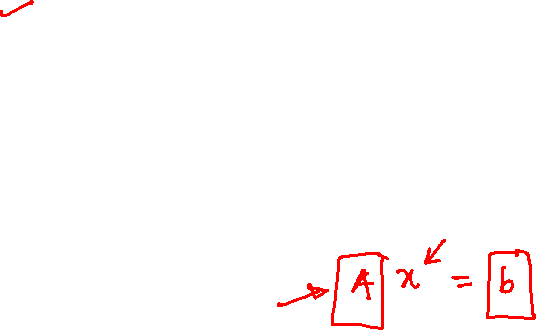 A x = b